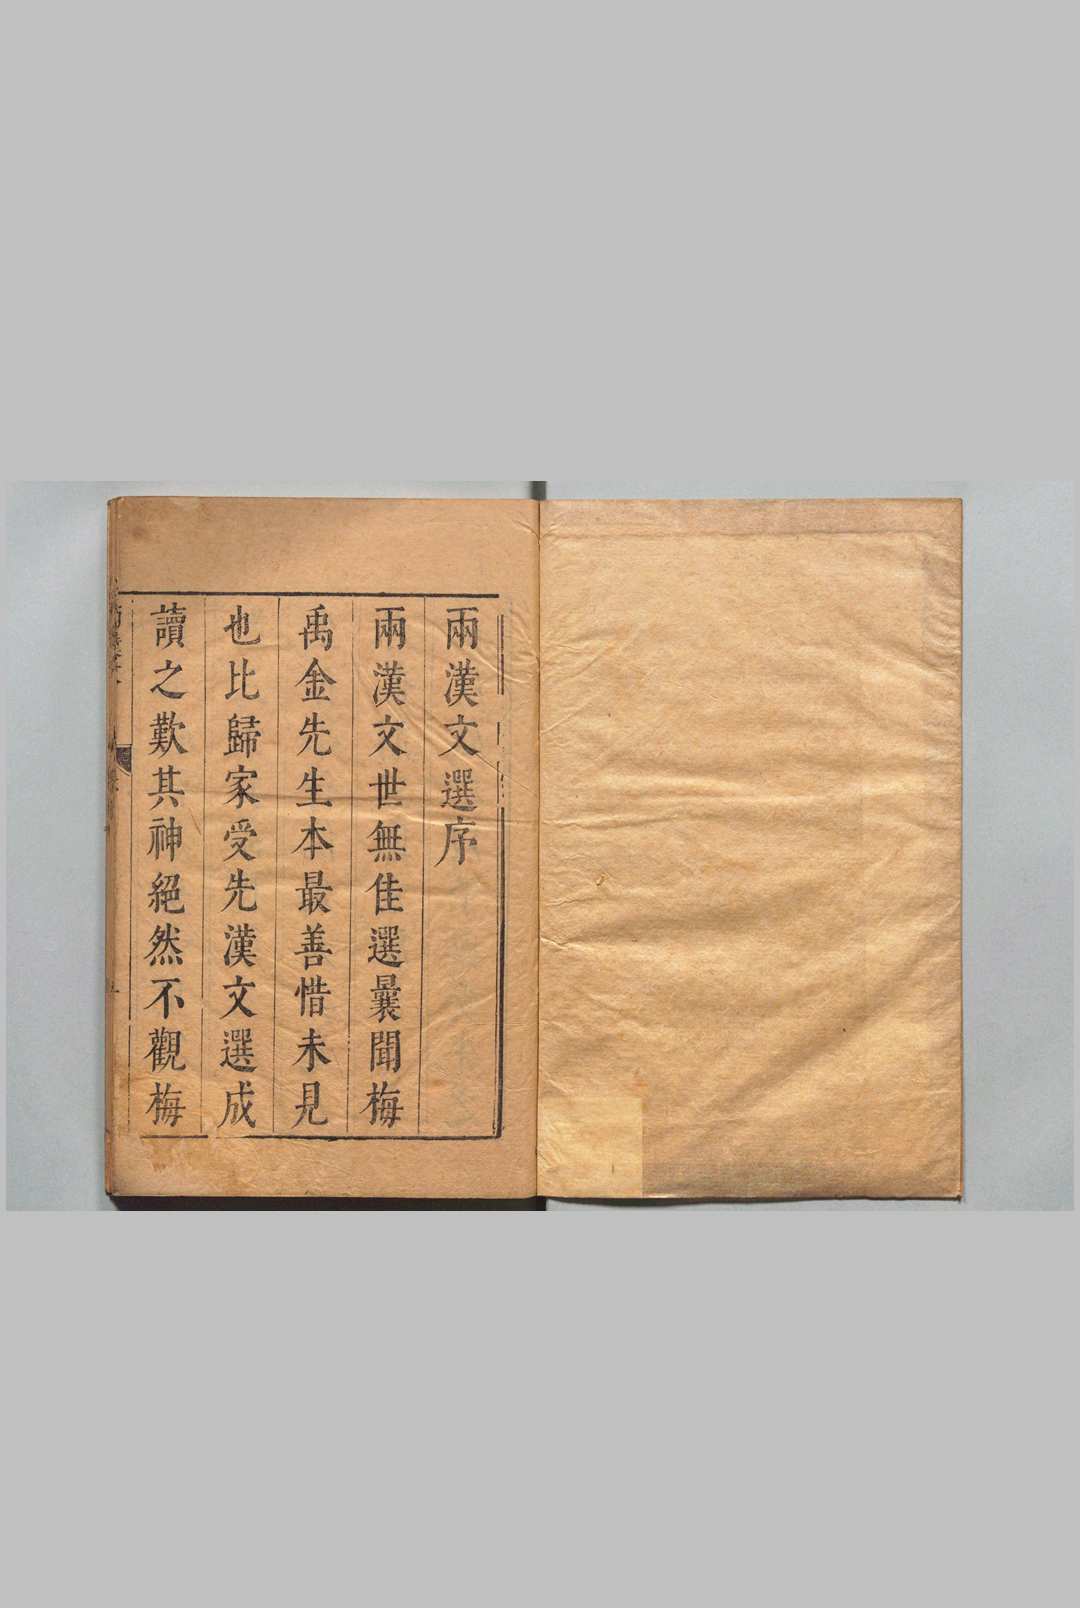 兩漢文選序
兩漢文世無佳選曩聞梅
禹金先生本最善惜未見
也比歸家受先漢文選成
讀之歎其神絕然不觀梅